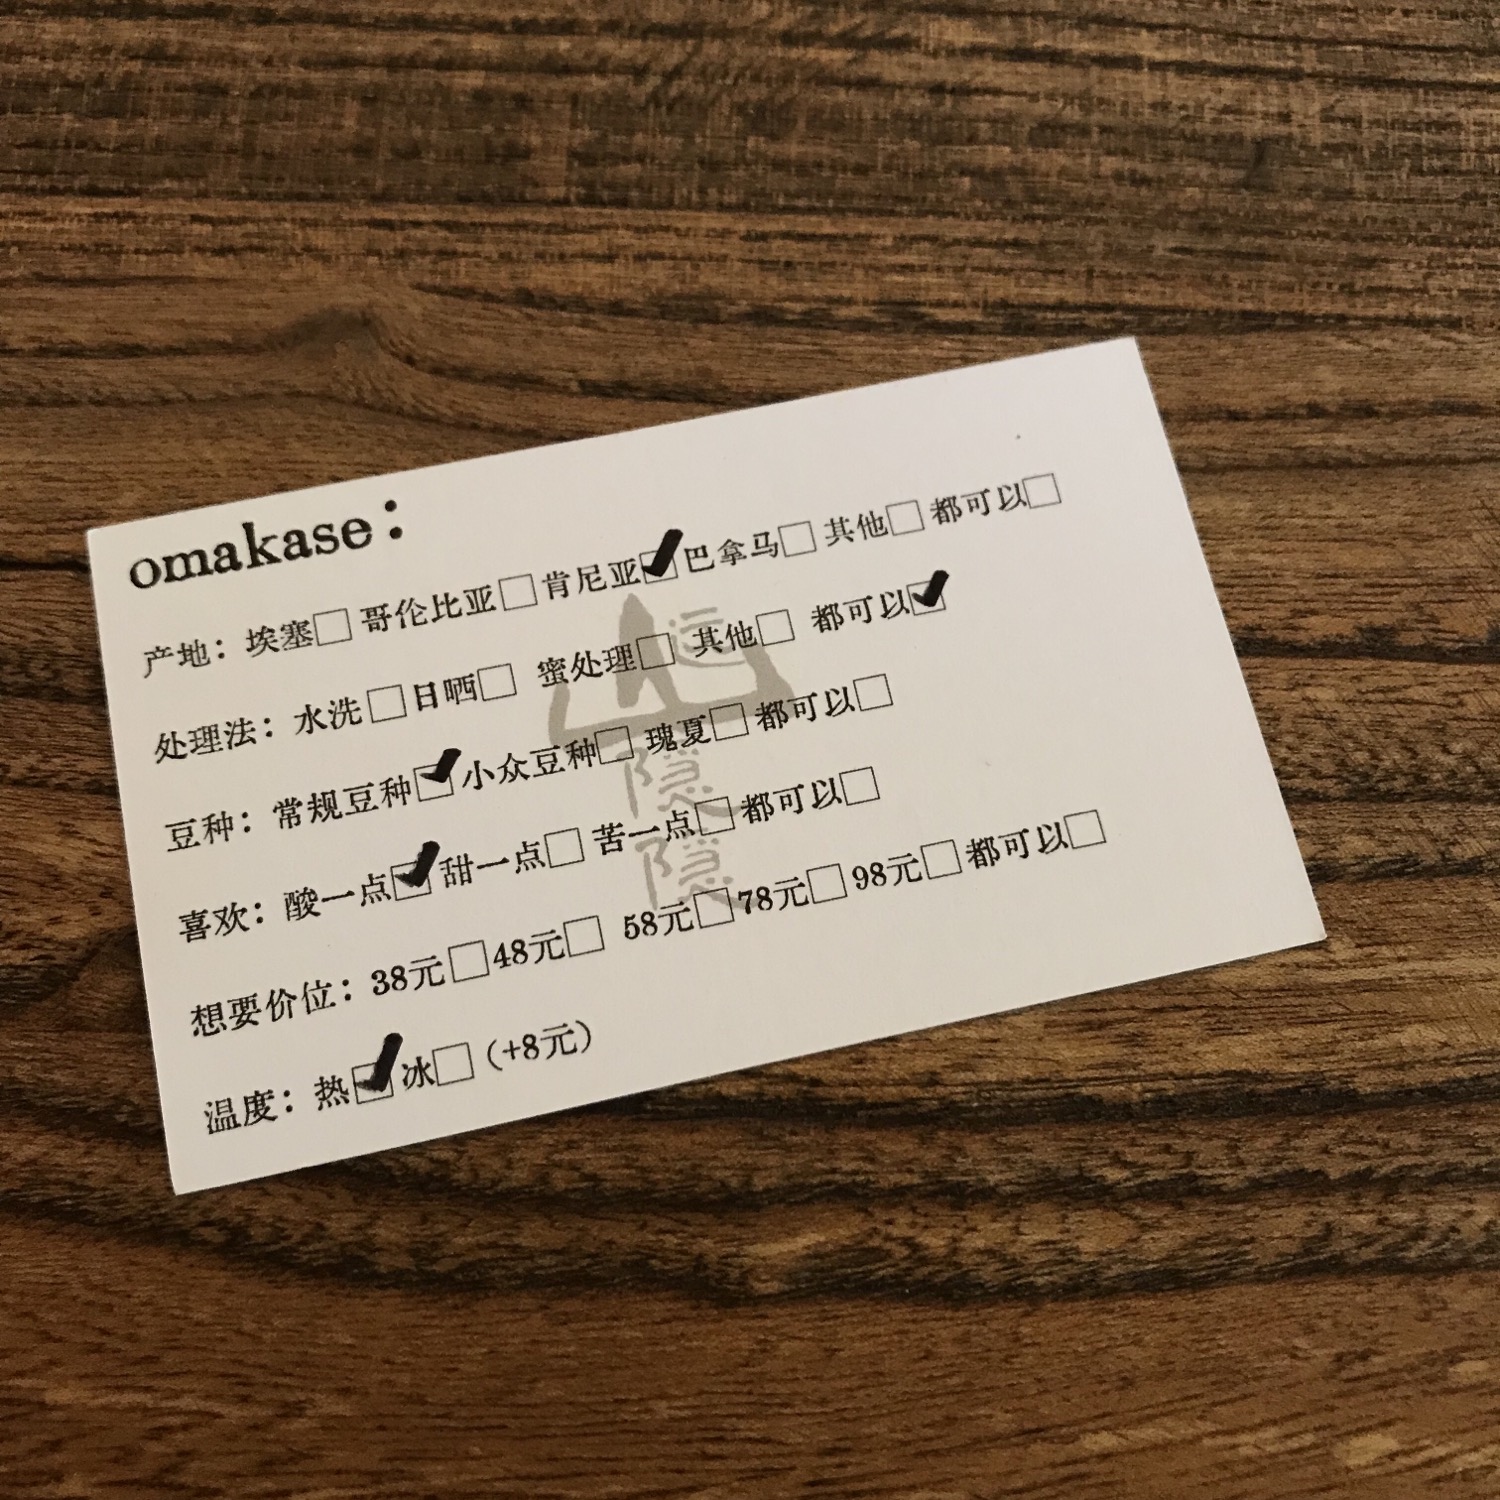 omakase：
产地：埃塞□ 哥伦比亚□ 肯尼亚☑ 巴拿马□ 其他□ 都可以□
处理法：水洗□ 日晒□ 蜜处理□ 其他□ 都可以☑
豆种：常规豆种☑ 小众豆种□ 瑰夏□ 都可以□
喜欢：酸一点☑ 甜一点□ 苦一点□ 都可以□
想要价位：38元□ 48元□ 58元□ 78元□ 98元□ 都可以□
温度：热☑ 冰□（+8元）
远
山
隐
隐